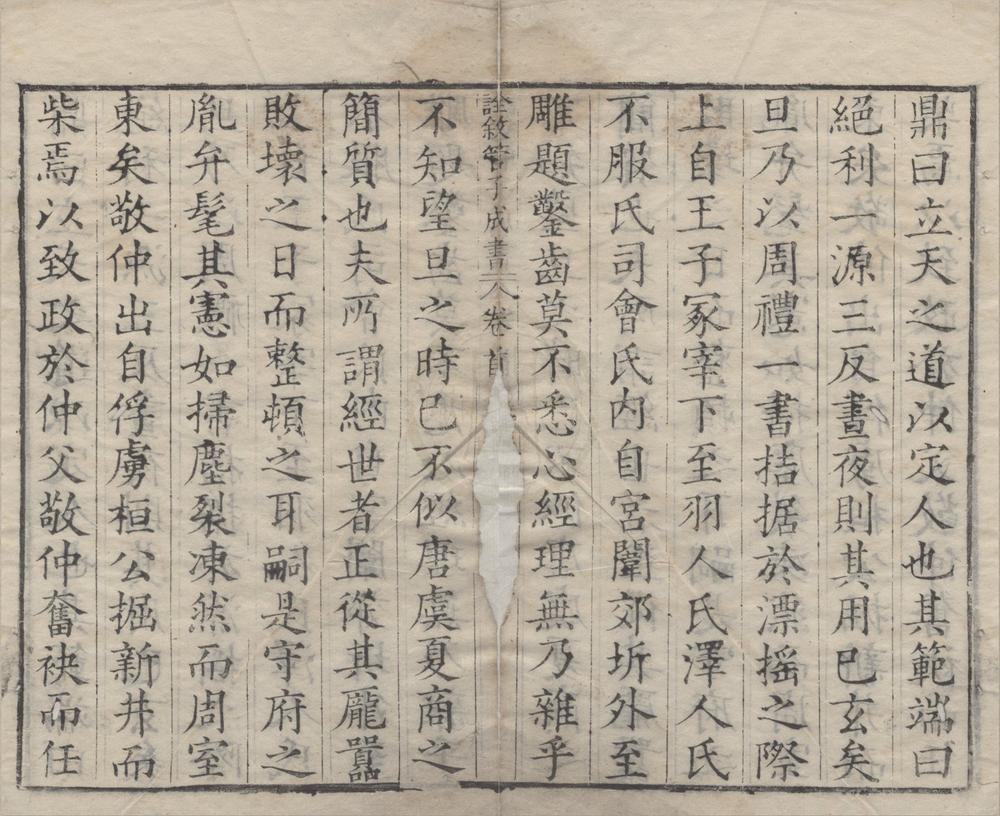 鼎曰立天之道以定人也其範端曰
絕利一源三反晝夜則其用巳玄矣
旦乃以周禮一書拮据於漂搖之際
上自王子冢宰下至羽人氏澤人氏
不服氏司會氏内自宮闈郊圻外至
雕題鑿齒莫不悉心經理無乃雜乎
詮敘管子成書 卷首
不知望旦之時已不似唐虞夏商之
簡質也夫所謂經世者正從其龐囂
敗壞之日而整頓之耳嗣是守府之
胤弁髦其憲如掃塵裂凍然而周室
東矣敬仲出自俘虜桓公掘新井而
柴焉以致政於仲父敬仲奮袂而任